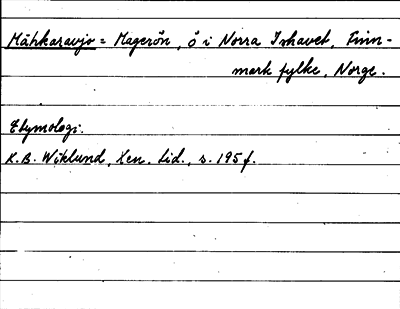 Máhkaravjo = Magerön, ö i Norra Ishavet, Finn-
mark fylke, Norge.
Etymologi:
K.B. Wiklund, Xen. Lid., s. 195 f.